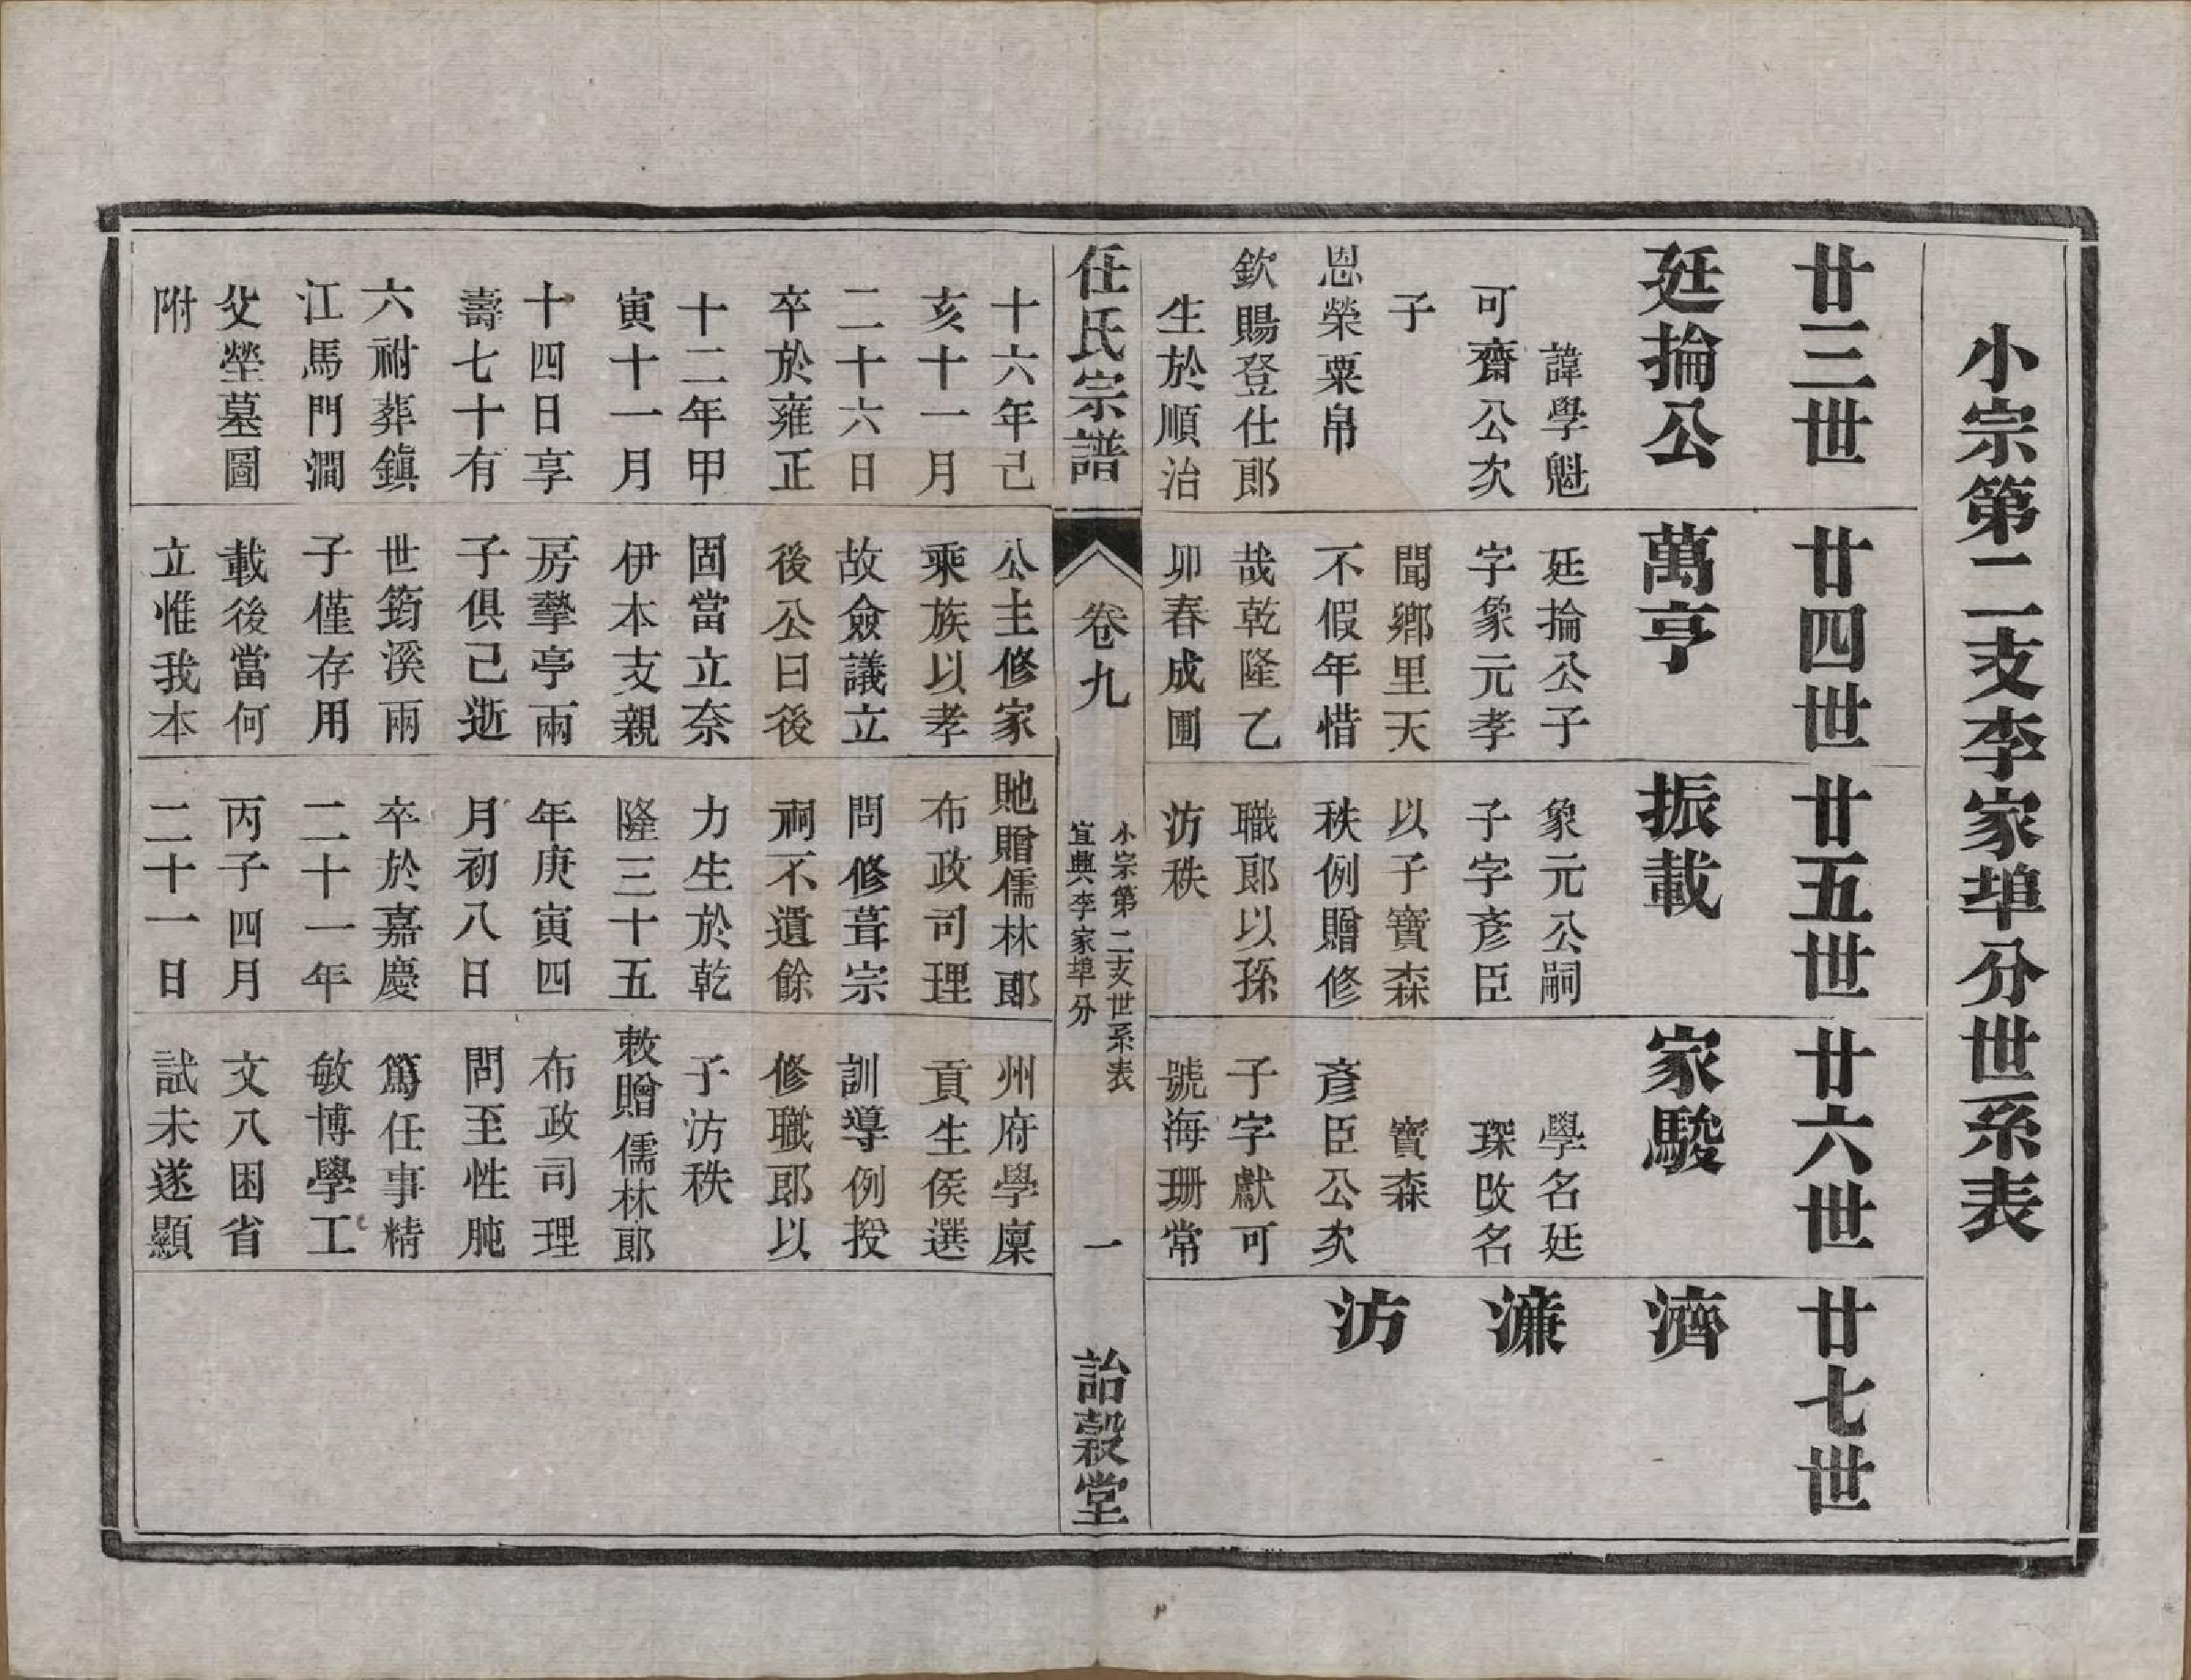 小宗第二支李家埠分世系表
廿三世
廷掄公
諱學魁
可齋公次
子
恩榮粟帛
欽賜登仕郎
生於順治
十六年己
亥十一月
二十六日
卒於雍正
十二年甲
寅十一月
十四日享
壽七十有
六祔葬鎮
江馬門澗
父塋墓圖
附
廿四世
萬亨
廷掄公子
字象元孝
聞鄉里天
不假年惜
哉乾隆乙
卯春成圃
公主修家
乘族以孝
故僉議立
後公曰後
固當立奈
伊本支親
房摯亭兩
子俱已逝
世筠溪兩
子僅存用
載後當何
立惟我本
廿五世
振載
象元公嗣
子字彥臣
以子寶森
秩例贈修
職郎以孫
汸秩
貤贈儒林郎
布政司理
問修葺宗
祠不遺餘
力生於乾
隆三十五
年庚寅四
月初八日
卒於嘉慶
二十一年
丙子四月
二十一日
廿六世
家駿
學名廷
琛改名
寶森
彥臣公次
子字獻可
號海珊常
州府學廩
貢生侯選
訓導例授
修職郎以
子汸秩
敕贈儒林郎
布政司理
問至性肫
篤任事精
敏博學工
文八困省
試未遂顯
廿七世
濟
濂
汸
任氏宗譜
卷九
小宗第二支世系表
宜興李家埠分
一
詒穀堂